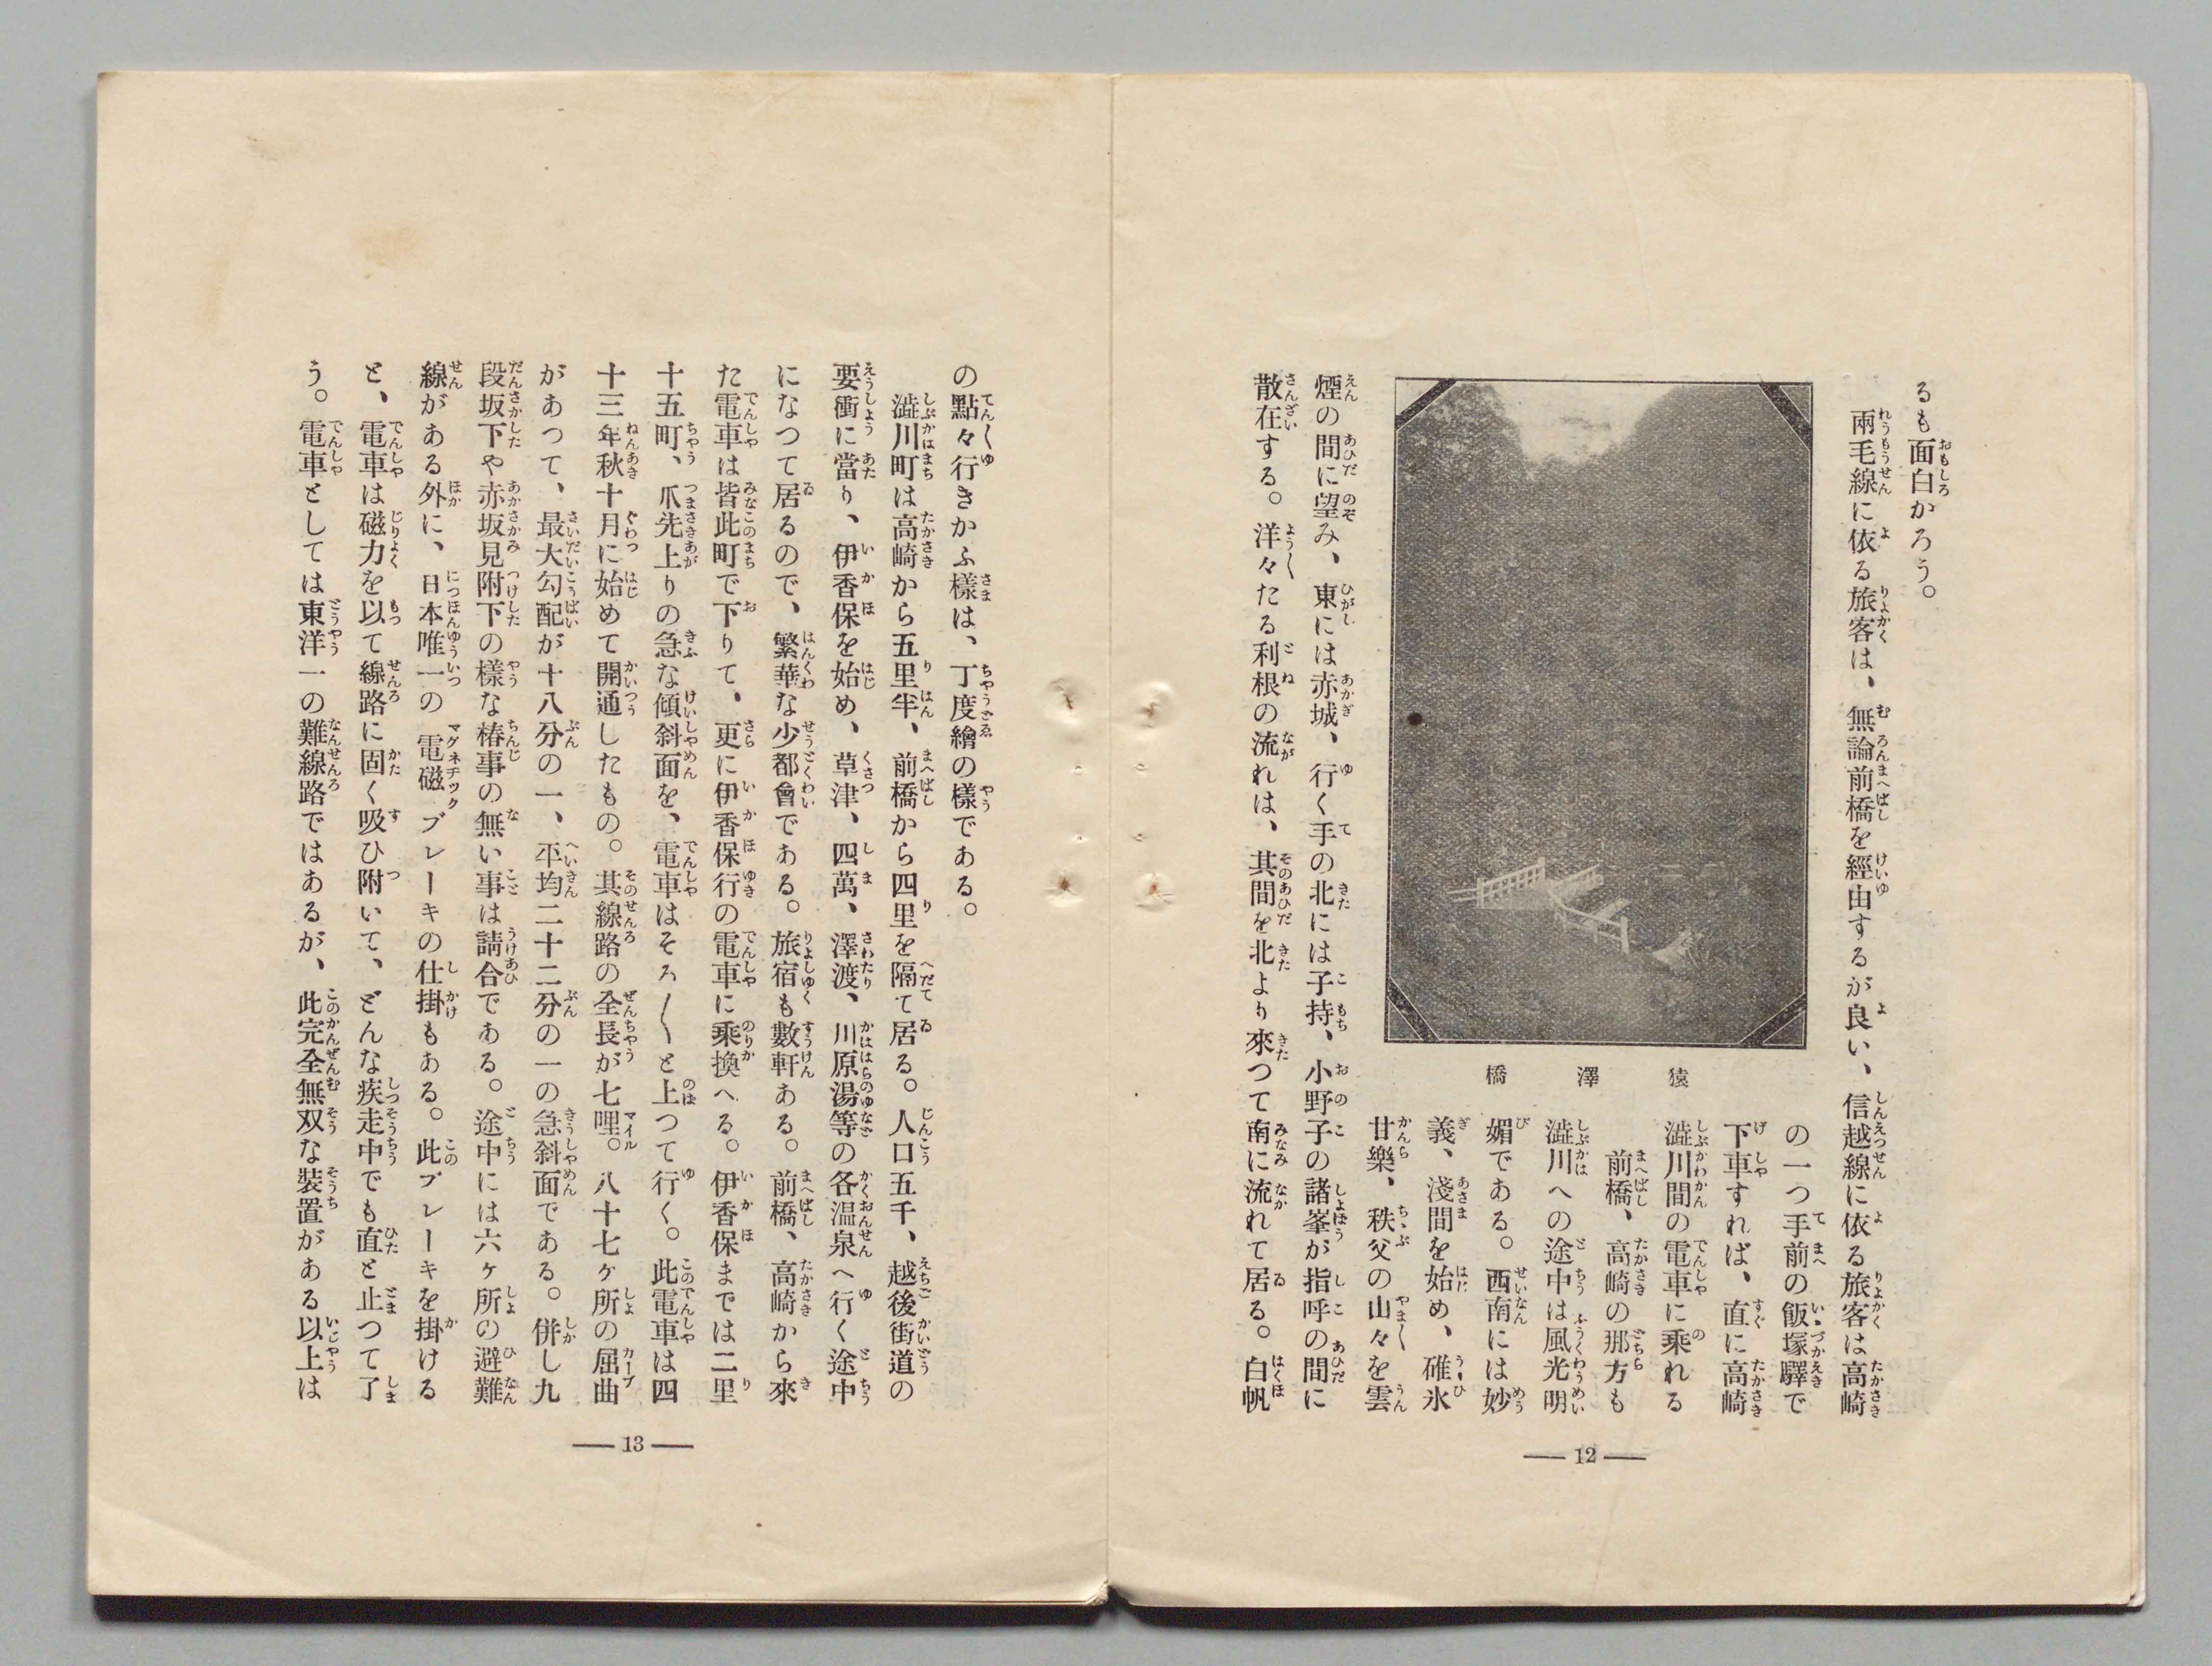 るも面白かろう。
兩毛線に依る旅客は、無論前橋を經由するが良い、信越線に依る旅客は高崎
の一つ手前の飯塚驛で
下車すれば、直に高崎
澁川間の電車に乘れる
前橋、高崎の那方も
澁川への途中は風光明
媚である。西南には妙
義、淺間を始め、碓氷
甘樂、秩父の山々を雲
煙の間に望み、東には赤城、行く手の北には子持、小野子の諸峯が指呼の間に
散在する。洋々たる利根の流れは、其間を北より來つて南に流れて居る。白帆
猿澤橋
12
の點々行きかふ樣は、丁度繪の樣である。
澁川町は高崎から五里半、前橋から四里を隔て居る。人口五千、越後街道の
要衝に當り、伊香保を始め、草津、四萬、澤渡、川原湯等の各温泉へ行く途中
になつて居るので、繁華な少都會である。旅宿も數軒ある。前橋、高崎から來
た電車は皆此町で下りて、更に伊香保行の電車に乘換へる。伊香保までは二里
十五町、爪先上りの急な傾斜面を、電車はそろ〱と上つて行く。此電車は四
十三年秋十月に始めて開通したもの。其線路の全長が七哩。八十七ヶ所の屈曲
があつて、最大勾配が十八分の一、平均二十二分の一の急斜面である。併し九
段坂下や赤坂見附下の樣な椿事の無い事は請合である。途中には六ヶ所の避難
線がある外に、日本唯一の電磁ブレーキの仕掛もある。此ブレーキを掛ける
と、電車は磁力を以て線路に固く吸ひ附いて、どんな疾走中でも直と止つて了
う。電車としては東洋一の難線路ではあるが、此完全無双な裝置がある以上は
13